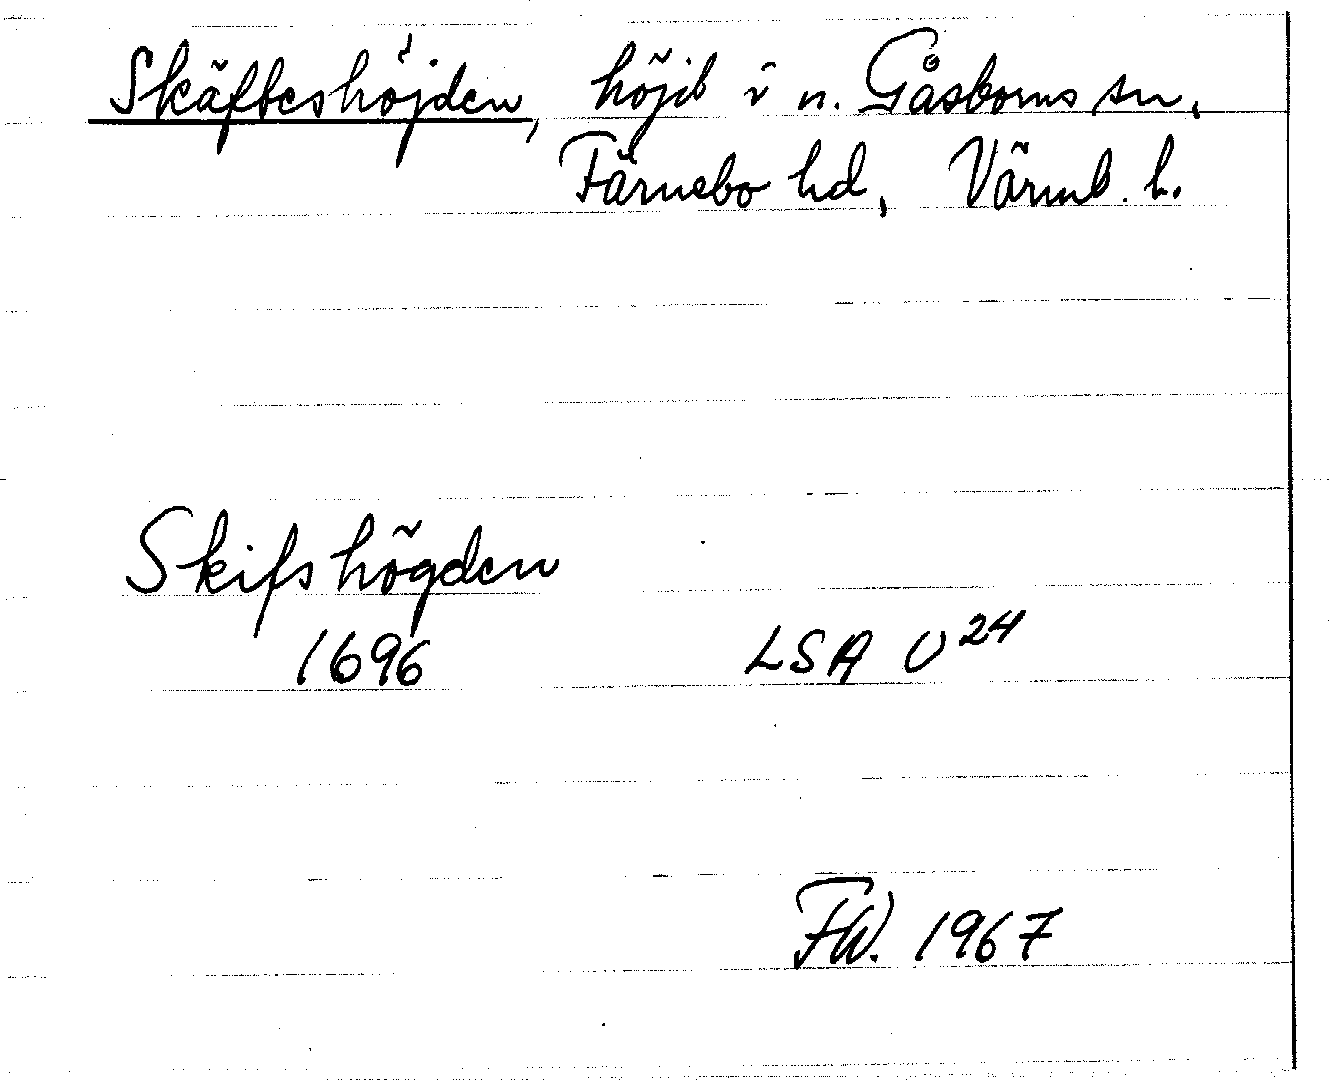 Skäfteshöjden, höjd i n. Gåsborns sn,
Färnebo hd, Värml. l.
Skifshögden
1696 LSA U 24
FW. 1967